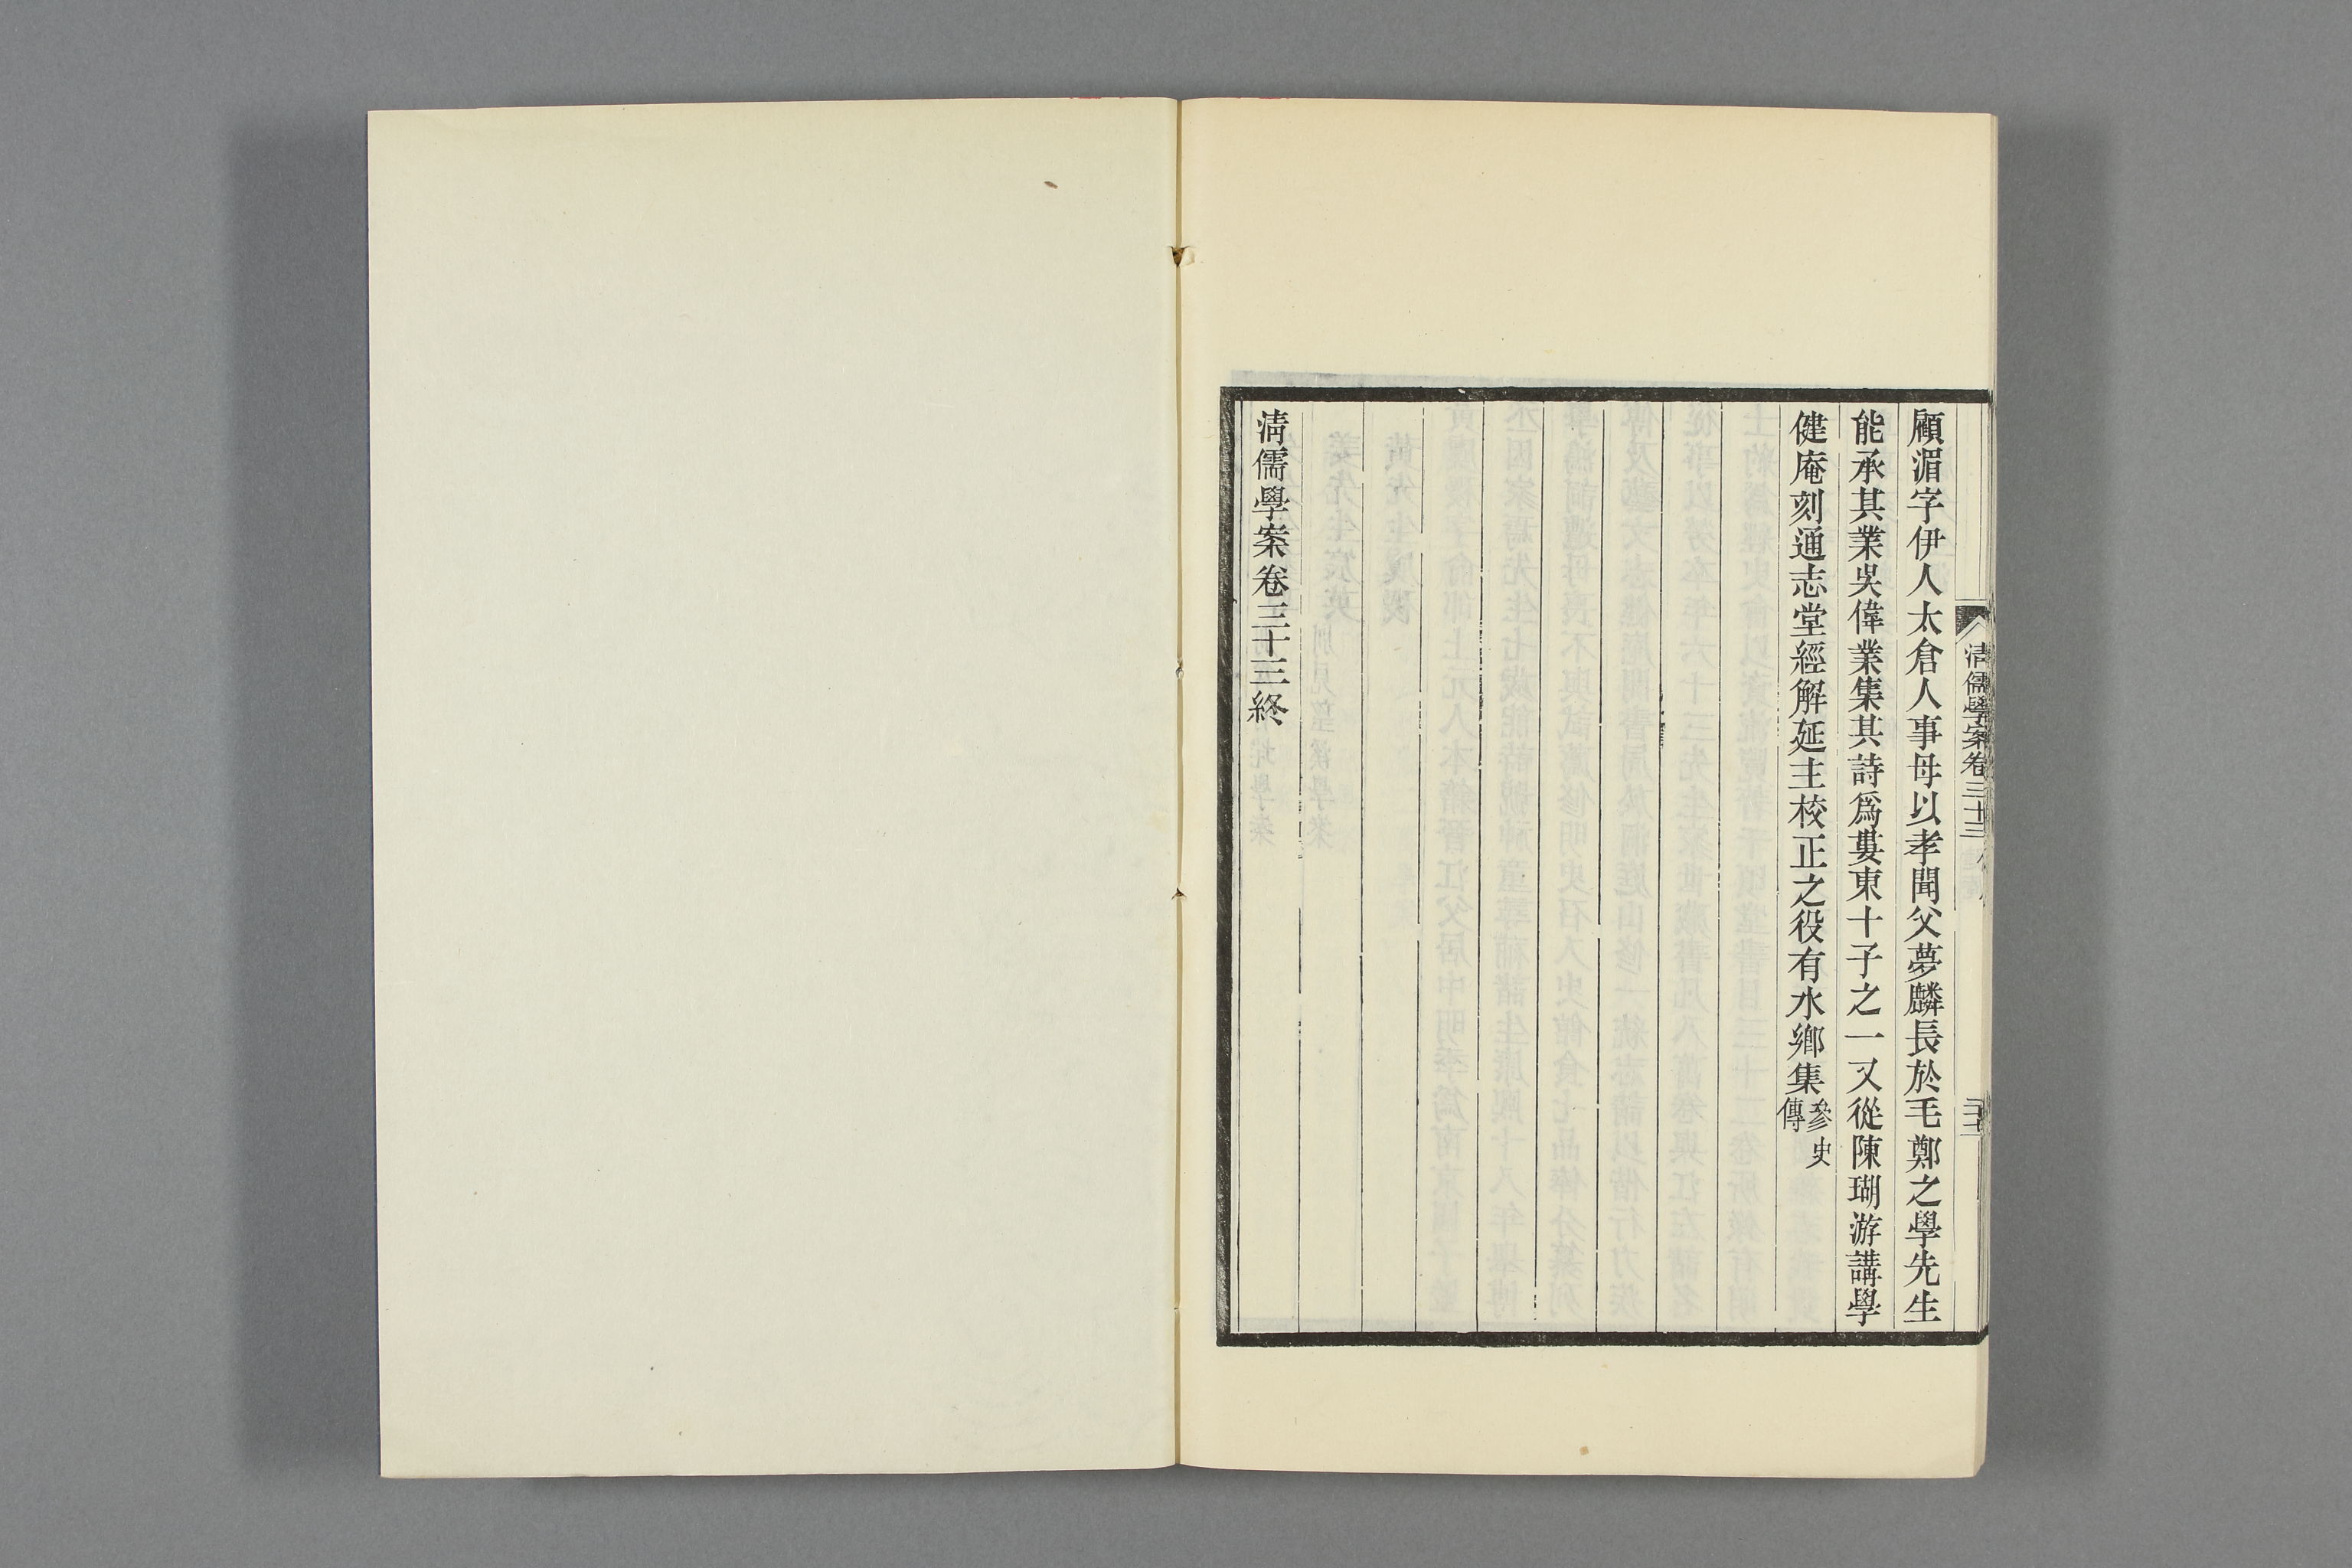 顧湄字伊人太倉人事母以孝聞父夢麟長於毛鄭之學先生
能承其業吳偉業集其詩爲婁東十子之一又從陳瑚游講學
健庵刻通志堂經解延主校正之役有水鄉集參史傳
清儒學案卷三十三終
清儒學案卷三十三